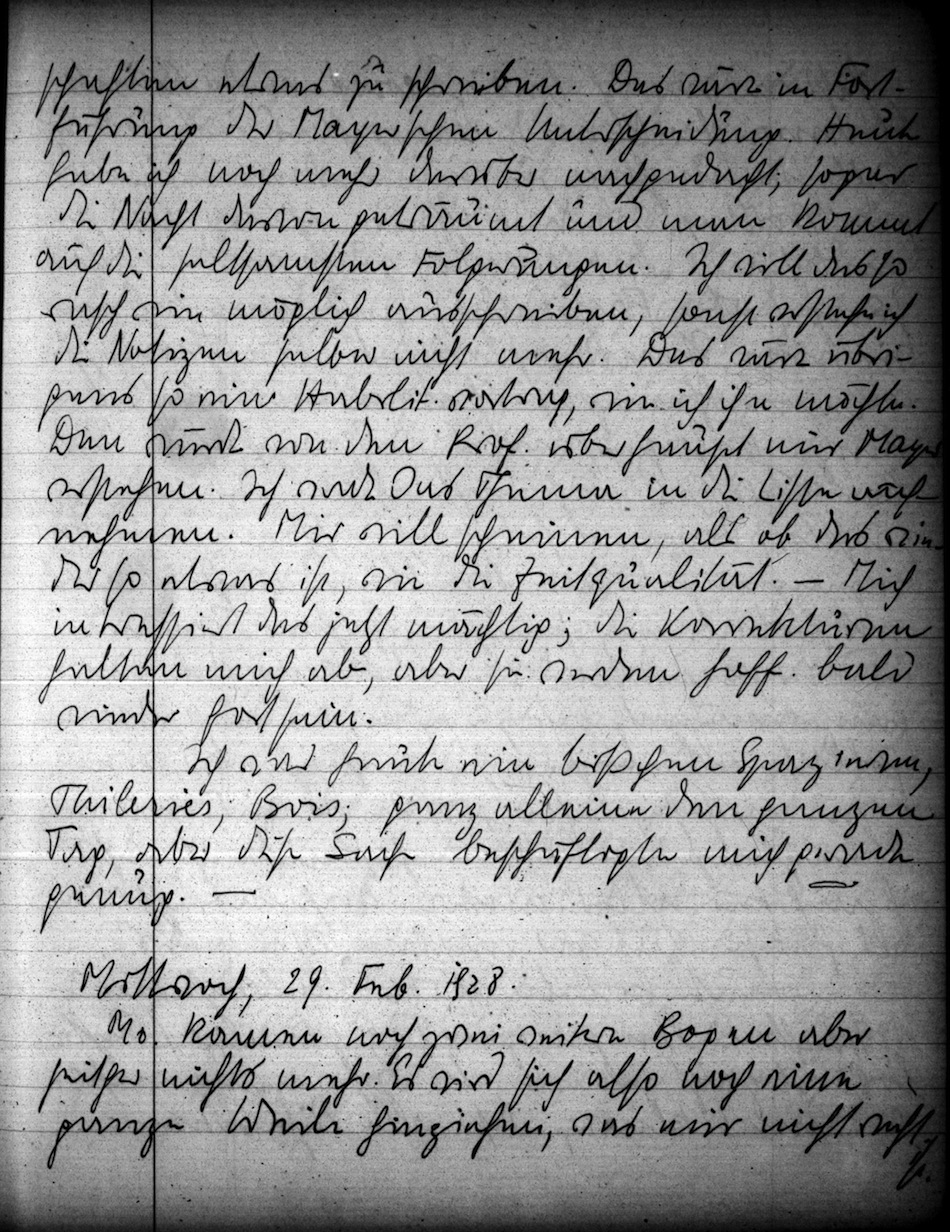 schaften etwas zu schreiben. Das wäre in Fort-
führung der Mayerschen Unterscheidung. Heute
habe ich noch mehr darüber nachgedacht; sogar
die Nacht davon geträumt und man kommt
auf die seltsamsten Folgerungen. Ich will das so
rasch wie möglich aufschreiben, sonst verstehe ich
die Notizen selber nicht mehr. Das wäre übri-
gens so ein Habilit. vortrag, wie ich ihn möchte.
Den würde von den Prof. überhaupt nur Mayer
verstehen. Ich werde das Thema in die Liste auch
nehmen. Mir will scheinen, als ob das wie-
der so etwas ist, wie die Zeitqualität. — Mich
interessiert das jetzt mächtig; die Korrekturen
halten mich ab, aber sie werden hoff. bald
wieder fort sein.
Ich war heute ein bißchen Spazieren,
Thileries, Bois; ganz alleine den ganzen
Tag, aber diese Sache beschäftigte mich gerade
genug. —
Mittwoch, 29. Feb. 1928.
Mo. kamen noch zwei weitere Bogen aber
seither nichts mehr. Es wird sich also noch eine
ganze Weile hinziehen, was mir nicht recht
ist.